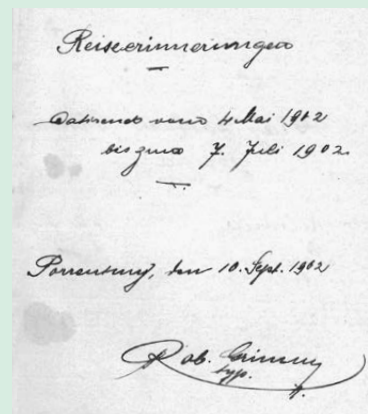 Reiseerinnerungen
datirend vom 4. Mai 1902
bis zum 7. Juli 1902.
Porrentruy, den 10. Sept. 1902
Rob. Grimm
typ.